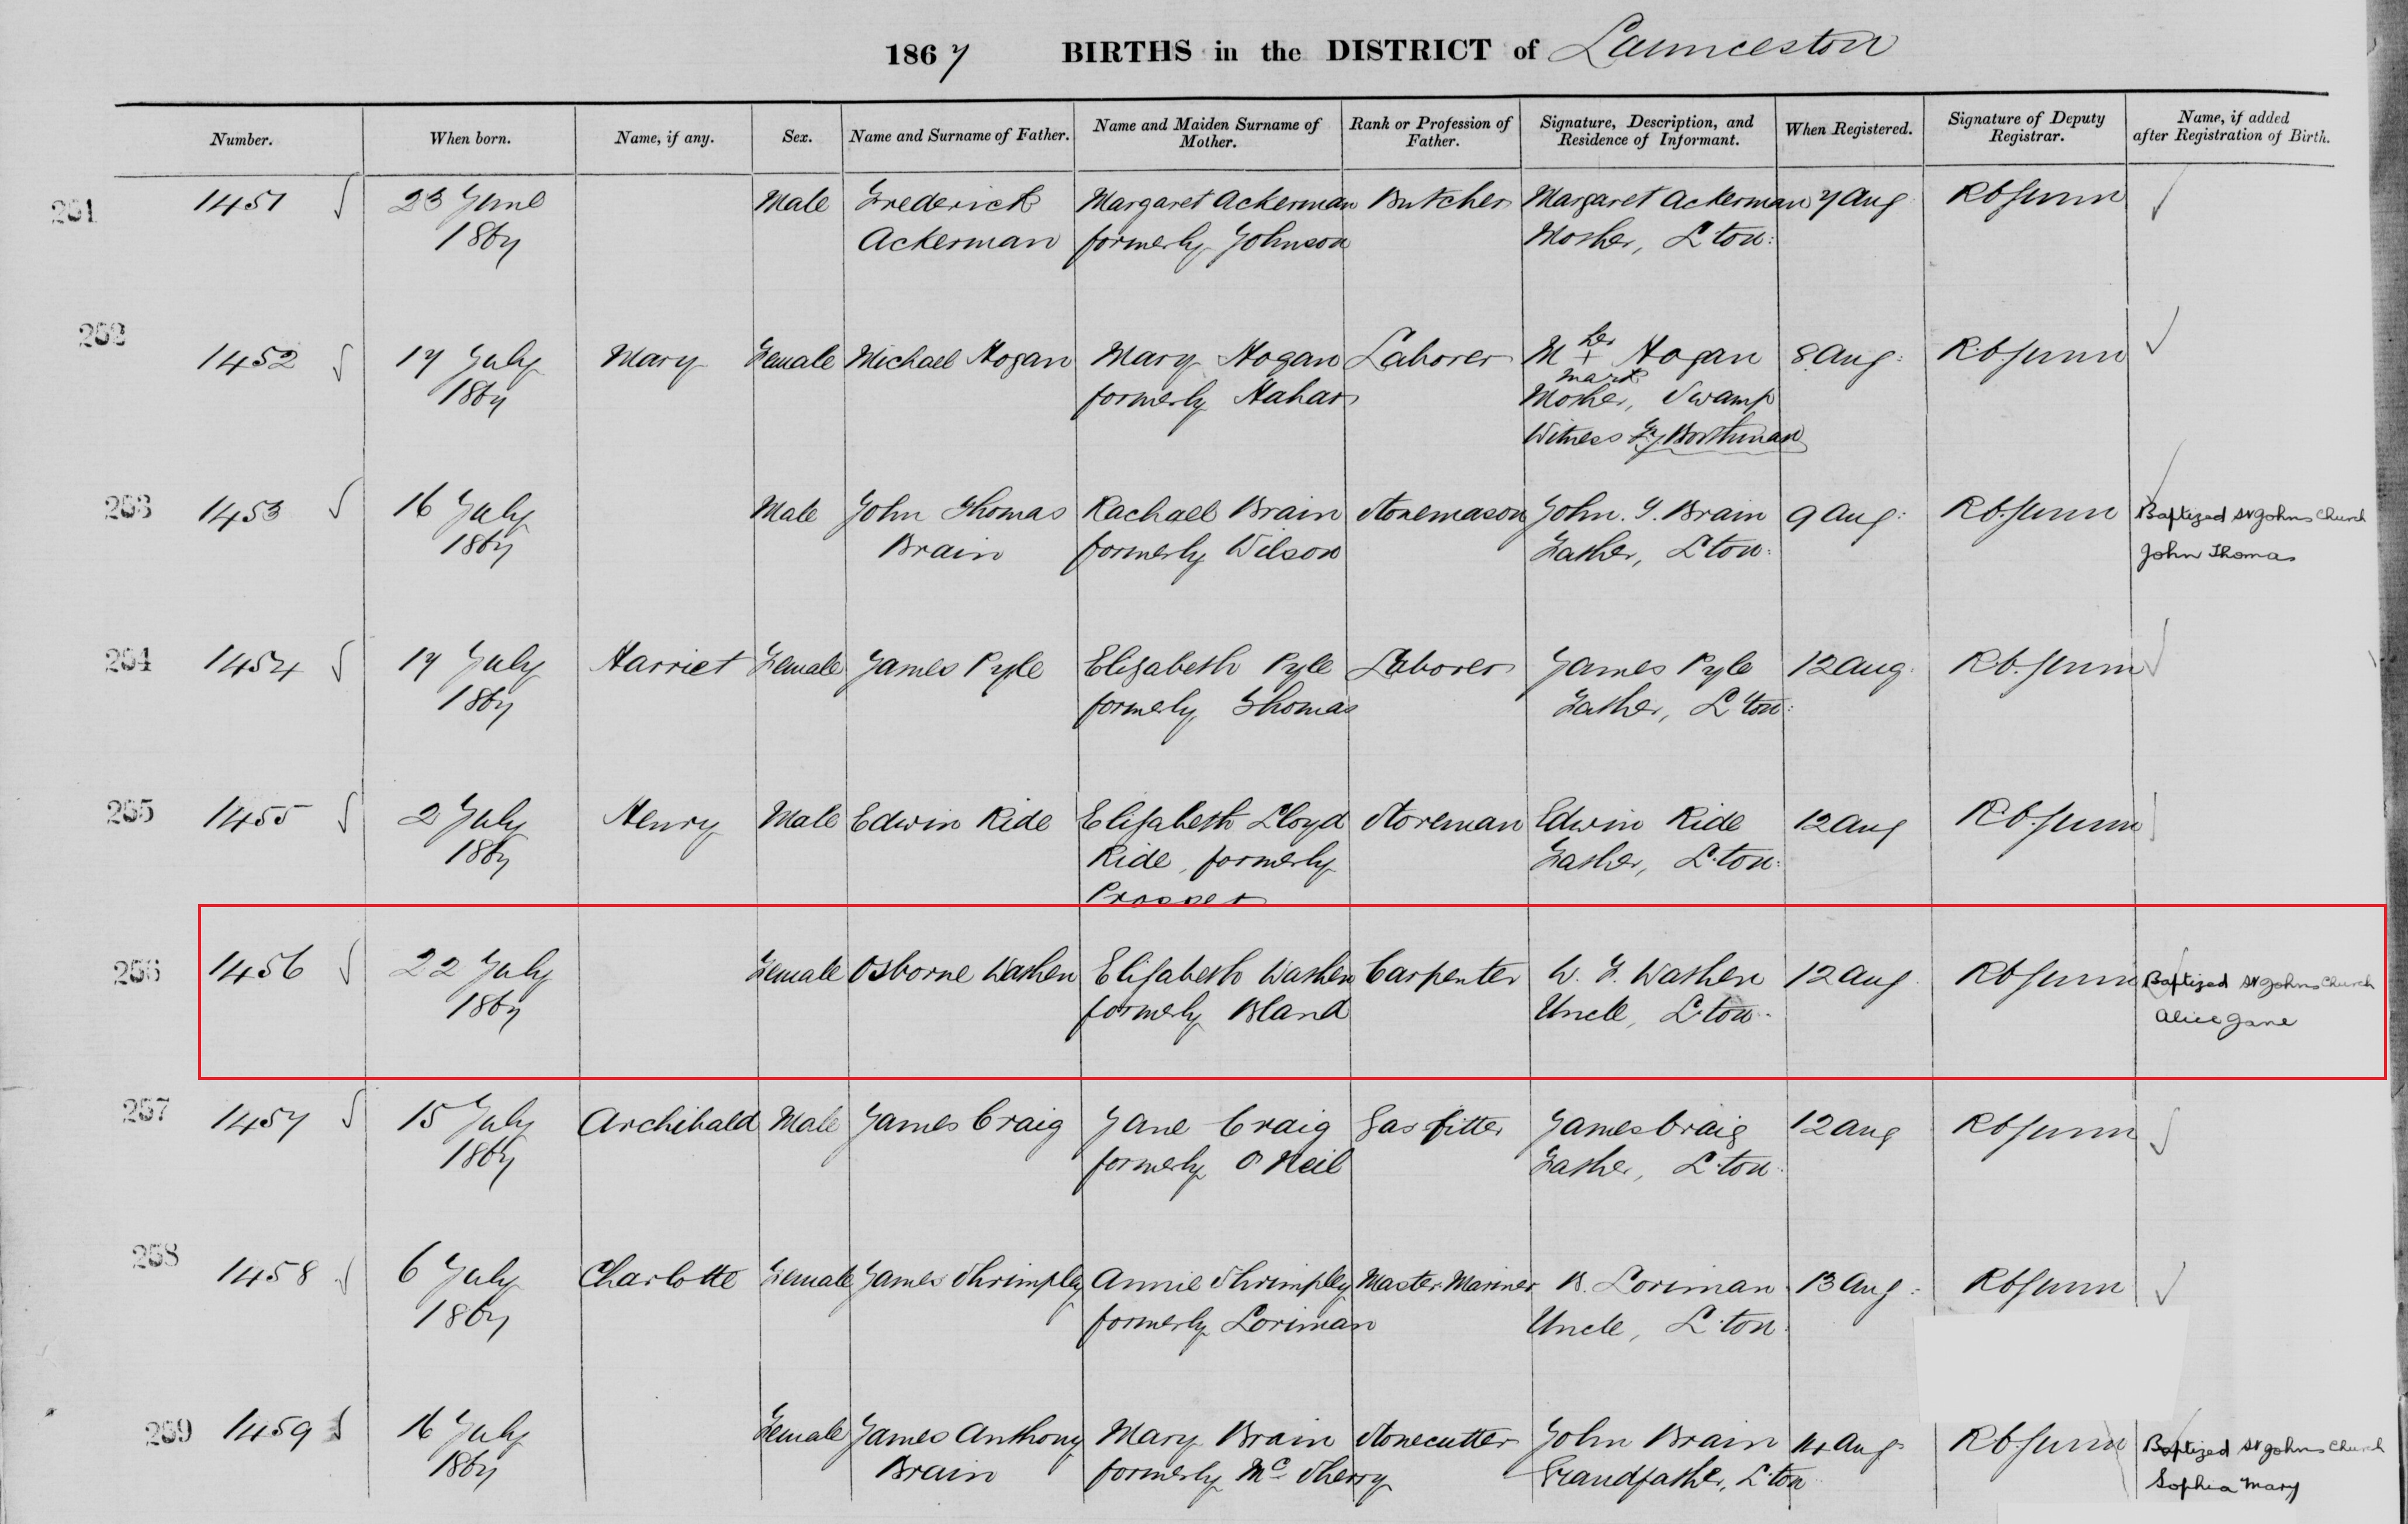 1867 BIRTHS in the DISTRICT of Launceston
Number. When born. Name, if any. Sex. Name and Surname of Father. Name and Maiden Surname of Mother. Rank or Profession of Father. Signature, Description, and Residence of Informant. When Registered. Signature of Deputy Registrar. Name, if added after Registration of Birth.
251 1451 23 June Male Frederick Margaret Ackerman Butcher Margaret Ackerman 7 Aug
1867 Ackerman formerly Johnson Mother, L'ton:
her
252 1452 17 July Mary Female Michael Hogan Mary Hogan Laborer M + Hogan 8 Aug:
mark
1867 formerly Mother, Swamp
Witness
253 1453 16 July Male John Thomas Rachael Brain Stonemason John. T. Brain 9 Aug: Baptized St Johns Church
1867 Brain formerly Wilson Father, L'ton: John Thomas
254 1454 17 July Harriet Female James Pyle Elizabeth Pyle Laborer James Pyle 12 Aug
1867 formerly Thomas Father, L'ton:
255 1455 2 July Henry Male Edwin Ride Elizabeth Lloyd Storeman Edwin Ride 12 Aug
1867 Ride, formerly Father, L'ton:
Prosser
256 1456 22 July Female Osborne Washen Elizabeth Washen Carpenter W. F. Washen 12 Aug Baptized St Johns Church
1867 formerly Bland Uncle, L'ton Alice Jane
257 1457 15 July Archibald Male James Craig Jane Craig Gas fitter James Craig 12 Aug
1867 formerly O'Neil Father, L'ton
258 1458 6 July Charlotte Female James Shrimpley Annie Shrimpley Master Mariner B. Loriman 13 Aug:
1867 formerly Loriman Uncle, L'ton
259 1459 16 July Female James Anthony Mary Brain Stonecutter John Brain 14 Aug Baptized St Johns Church
1867 Brain formerly Mc Sherry Grandfather, L'ton Sophia Mary